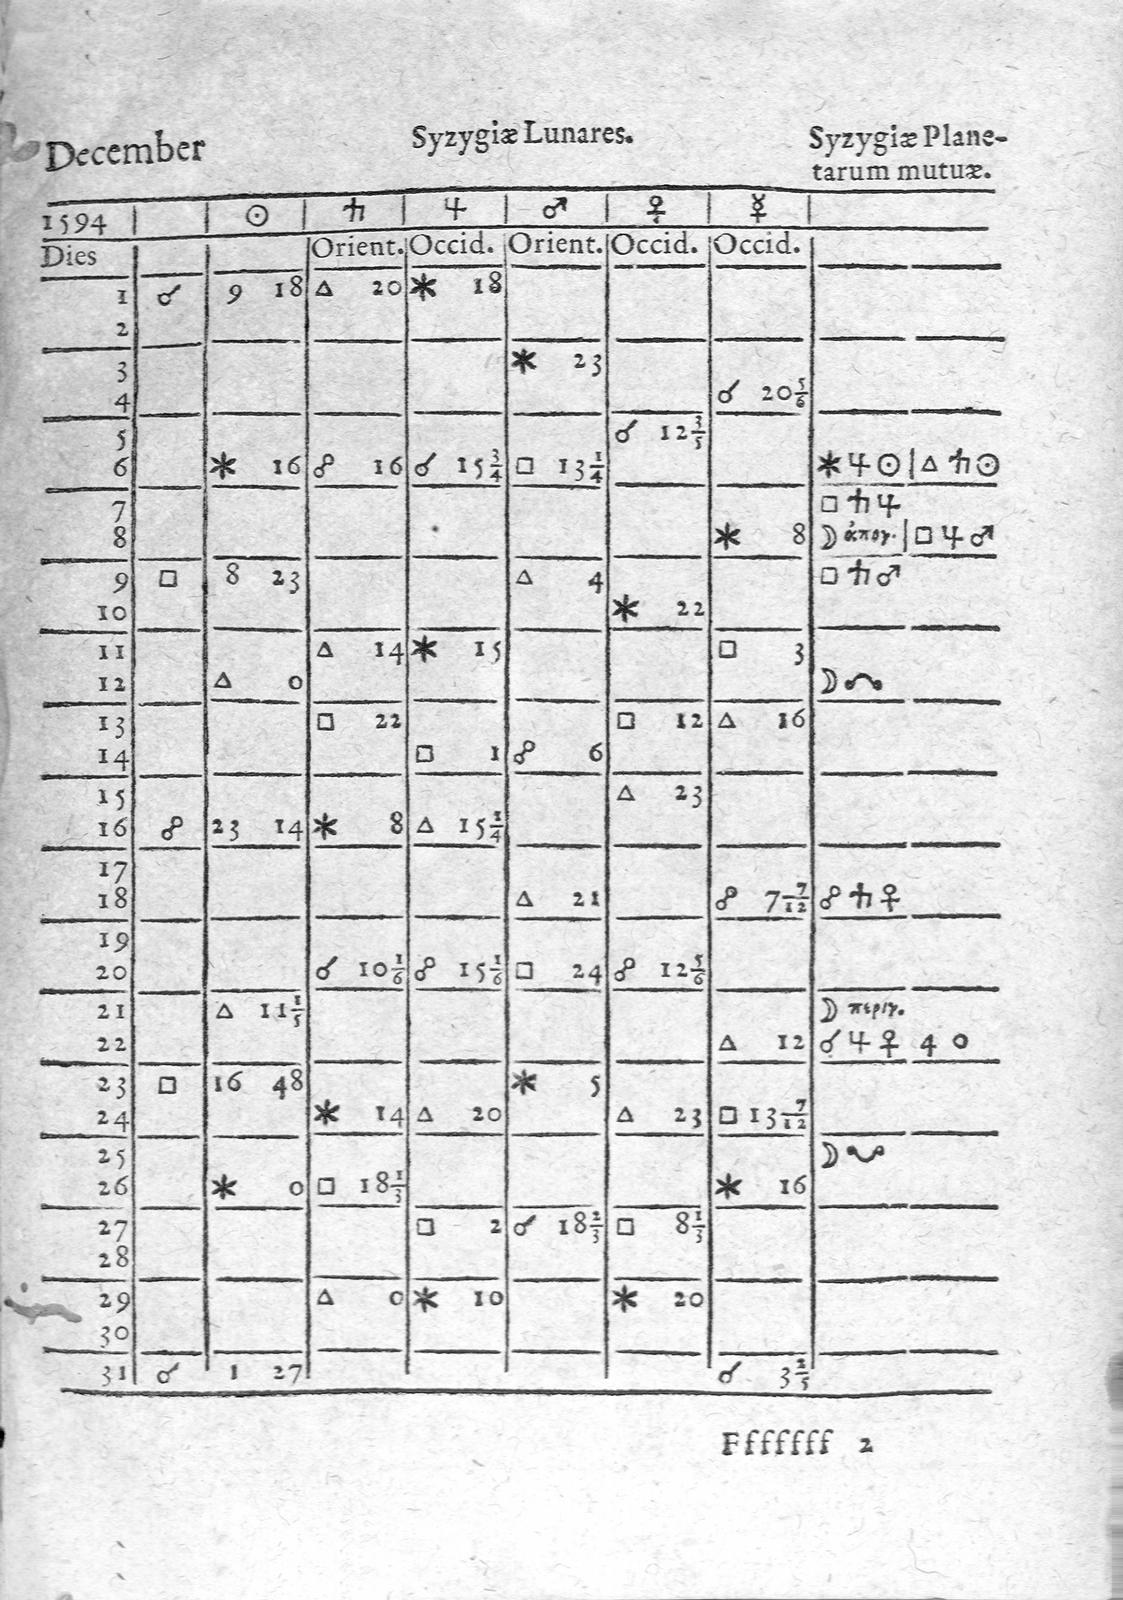 December Syzygiæ Lunares. Syzygiæ Plane-
tarum mutuæ.
1594 ☉ ♄ ♃ ♂ ♀ ☿
Dies Orient. Occid. Orient. Occid. Occid.
1 ☌ 9 18 △ 20 ⚹ 18
2
3 ⚹ 23
4 ☌ 20 5/6
5 ☌ 12 3/5
6 ⚹ 16 ☍ 16 ☌ 15 3/4 □ 13 1/4 ⚹ ♃ ☉ | △ ♄ ☉
7 □ ♄ ♃
8 ⚹ 8 ☽ ἀπογ. | □ ♃ ♂
9 □ 8 23 △ 4 □ ♄ ♂
10 ⚹ 22
11 △ 14 ⚹ 15 □ 3
12 △ 0 ☽ ☊
13 □ 22 □ 12 △ 16
14 □ 1 ☍ 6
15 △ 23
16 ☍ 23 14 ⚹ 8 △ 15 1/4
17
18 △ 21 ☍ 7 7/12 ☍ ♄ ♀
19
20 ☌ 10 1/6 ☍ 15 1/6 □ 24 ☍ 12 5/6
21 △ 11 1/5 ☽ περιγ.
22 △ 12 ☌ ♃ ♀ 4 0
23 □ 16 48 ⚹ 5
24 ⚹ 14 △ 20 △ 23 □ 13 7/12
25 ☽ ☋
26 ⚹ 0 □ 18 1/3 ⚹ 16
27 □ 2 ☌ 18 2/3 □ 8 1/3
28
29 △ 0 ⚹ 10 ⚹ 20
30
31 ☌ 1 27 ☌ 3 2/5
Fffffff 2